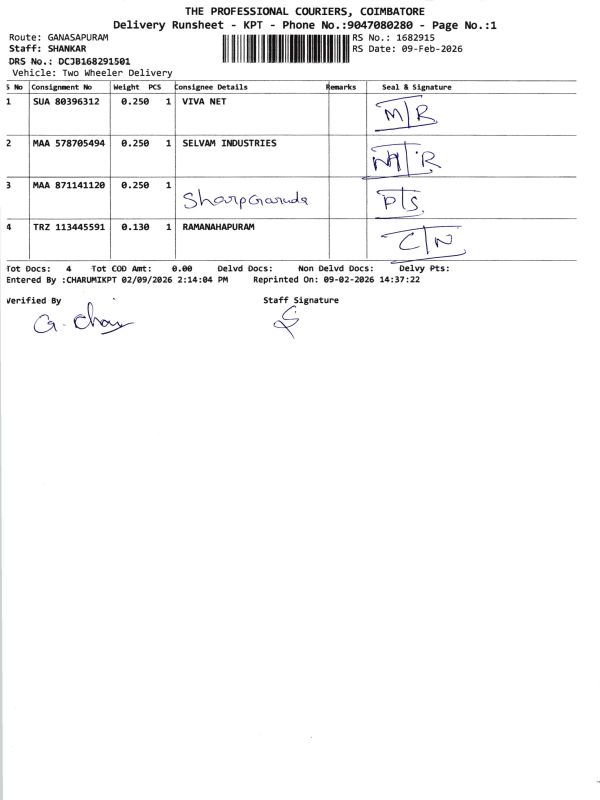 THE PROFESSIONAL COURIERS, COIMBATORE
Delivery Runsheet - KPT - Phone No.:9047080280 - Page No.:1
Route: GANASAPURAM RS No.: 1682915
Staff: SHANKAR RS Date: 09-Feb-2026
DRS No.: DCJB168291501
Vehicle: Two Wheeler Delivery
S No Consignment No Weight PCS Consignee Details Remarks Seal & Signature
1 SUA 80396312 0.250 1 VIVA NET M/R
2 MAA 578705494 0.250 1 SELVAM INDUSTRIES
3 MAA 871141120 0.250 1 SharpGaruda P/S
4 TRZ 113445591 0.130 1 RAMANAHAPURAM C/N
Tot Docs: 4 Tot COD Amt: 0.00 Delvd Docs: Non Delvd Docs: Delvy Pts:
Entered By :CHARUMIKPT 02/09/2026 2:14:04 PM Reprinted On: 09-02-2026 14:37:22
Verified By Staff Signature